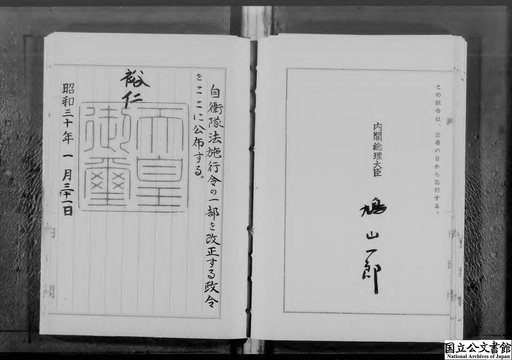 この政令は、公布の日から施行する。
内閣総理大臣
鳩山一郎
自衛隊法施行令の一部を改正する政令
をここに公布する。
裕仁
天皇御璽
昭和三十年一月三十一日
国立公文書館
National Archives of Japan